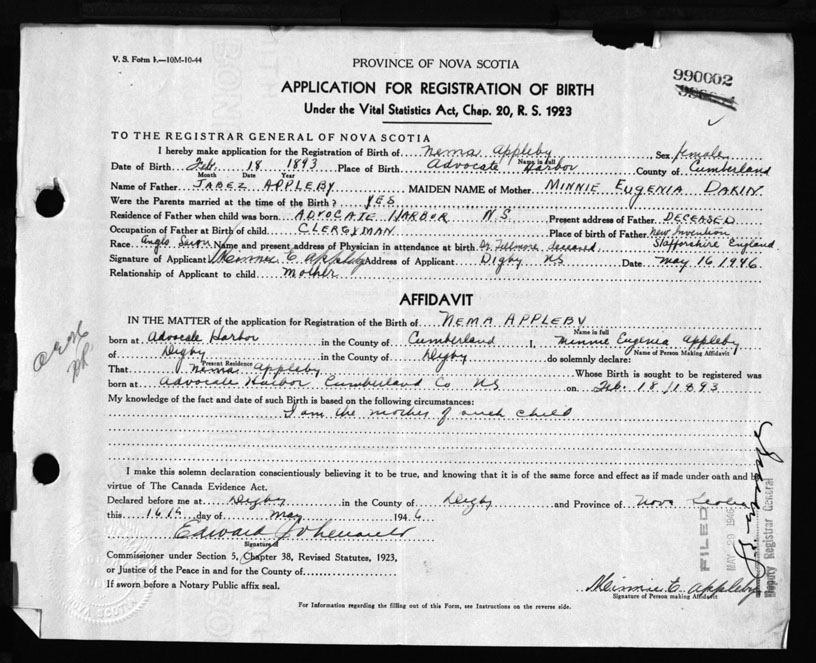 V. S. Form 1.—10M-10-44
PROVINCE OF NOVA SCOTIA
990002
APPLICATION FOR REGISTRATION OF BIRTH
Under the Vital Statistics Act, Chap. 20, R. S. 1923
TO THE REGISTRAR GENERAL OF NOVA SCOTIA
I hereby make application for the Registration of Birth of Nema Appleby Sex female
Name in full
Date of Birth Feb. 18 1893 Place of Birth Advocate Harbor County of Cumberland
Month Date Year
Name of Father JABEZ APPLEBY MAIDEN NAME of Mother MINNIE EUGENIA DAKIN
Were the Parents married at the time of the Birth? YES
Residence of Father when child was born ADVOCATE HARBOR N.S Present address of Father DECEASED
Occupation of Father at Birth of child CLERGYMAN Place of birth of Father New Invention
Race Anglo Saxon Name and present address of Physician in attendance at birth Dr. deceased Staffordshire England
Signature of Applicant Minnie E. Appleby Address of Applicant Digby NS Date May 16 1946
Relationship of Applicant to child Mother
AFFIDAVIT
IN THE MATTER of the application for Registration of the Birth of NEMA APPLEBY
Name in full
born at Advocate Harbor in the County of Cumberland I, Minnie Eugenia Appleby
Name of Person Making Affidavit
of Digby in the County of Digby do solemnly declare:
Present Residence
That Nema Appleby Whose Birth is sought to be registered was
born at Advocate Harbor Cumberland Co. NS on Feb. 18/1893
My knowledge of the fact and date of such Birth is based on the following circumstances:
I am the mother of such child
I make this solemn declaration conscientiously believing it to be true, and knowing that it is of the same force and effect as if made under oath and by
virtue of The Canada Evidence Act.
Declared before me at Digby in the County of Digby and Province of Nova Scotia
this 16th day of May 1946
Edward
Signature of
Commissioner under Section 5, Chapter 38, Revised Statutes, 1923,
or Justice of the Peace in and for the County of
If sworn before a Notary Public affix seal.
Minnie E. Appleby
Signature of Person making Affidavit
For Information regarding the filling out of this Form, see Instructions on the reverse side.
FILED
MAY 20 1946
Deputy Registrar General
NOVA SCOTIA